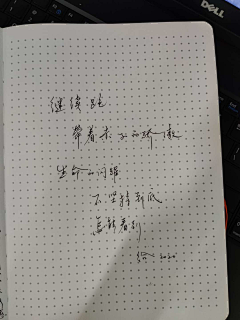 DELL
继续跑
带着赤子的骄傲
生命的闪耀
不坚持到底
怎能看到
给 2020